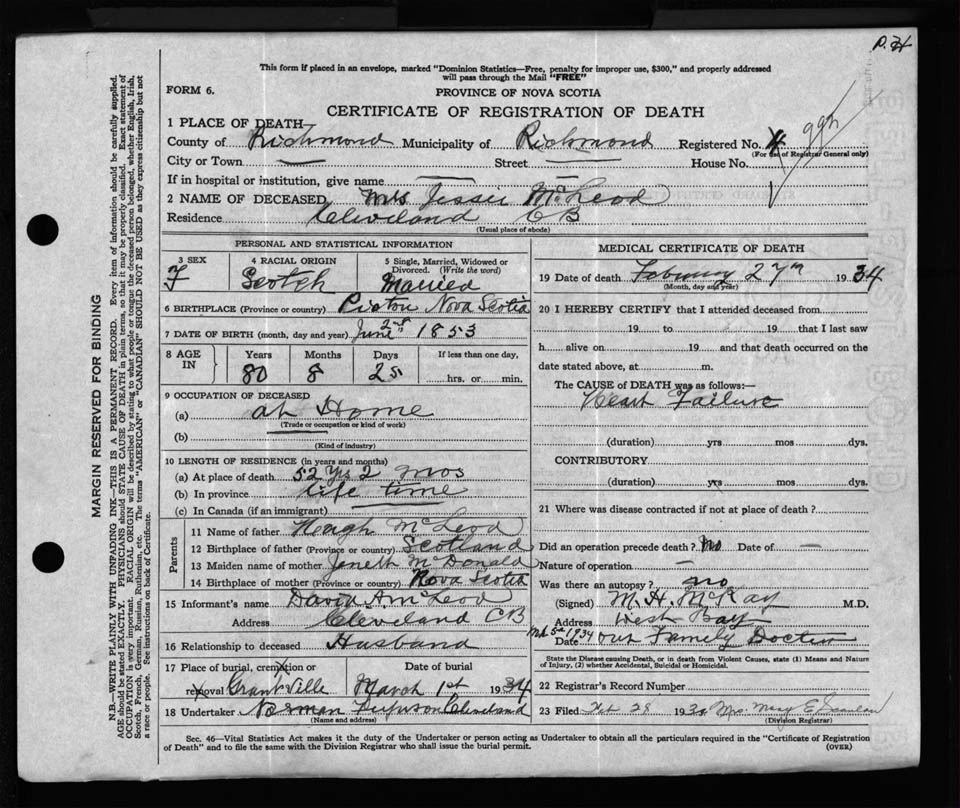 P. H
This form if placed in an envelope, marked "Dominion Statistics—Free, penalty for improper use, $300," and properly addressed
will pass through the Mail "FREE"
FORM 6.
PROVINCE OF NOVA SCOTIA
CERTIFICATE OF REGISTRATION OF DEATH
1 PLACE OF DEATH
County of Richmond Municipality of Richmond Registered No. 4 994
(For use of Registrar General only)
City or Town — Street — House No.
If in hospital or institution, give name —
2 NAME OF DECEASED Mrs Jessie McLeod
Residence Cleveland CB
(Usual place of abode)
PERSONAL AND STATISTICAL INFORMATION
3 SEX 4 RACIAL ORIGIN 5 Single, Married, Widowed or Divorced. (Write the word)
F Scotch Married
6 BIRTHPLACE (Province or country) Picton Nova Scotia
7 DATE OF BIRTH (month, day and year) June 2nd 1853
8 AGE IN Years Months Days If less than one day,
80 8 25 hrs. or min.
9 OCCUPATION OF DECEASED
(a) at Home
(Trade or occupation or kind of work)
(b)
(Kind of industry)
10 LENGTH OF RESIDENCE (in years and months)
(a) At place of death 52 Yrs 2 mos
(b) In province life time
(c) In Canada (if an immigrant)
Parents
11 Name of father Heugh McLeod
12 Birthplace of father (Province or country) Scotland
13 Maiden name of mother Janeth McDonald
14 Birthplace of mother (Province or country) Nova Scotia
15 Informant's name David A. McLeod
Address Cleveland CB
16 Relationship to deceased Husband
17 Place of burial, cremation or Date of burial
removal Grantville March 1st 1934
18 Undertaker Norman Ferguson Cleveland
(Name and address)
MEDICAL CERTIFICATE OF DEATH
19 Date of death February 27th 1934
(Month, day and year)
20 I HEREBY CERTIFY that I attended deceased from
19 to 19 that I last saw
h alive on 19 and that death occurred on the
date stated above, at m.
The CAUSE of DEATH was as follows:—
Heart Failure
(duration) yrs mos dys.
CONTRIBUTORY
(duration) yrs mos dys.
21 Where was disease contracted if not at place of death?
Did an operation precede death? No Date of —
Nature of operation —
Was there an autopsy? no
(Signed) M. H. McKay M.D.
Address West Bay
Date Mch 5th 1934 our Family Doctor
State the Disease causing Death, or in death from Violent Causes, state (1) Means and Nature
of Injury, (2) whether Accidental, Suicidal or Homicidal.
22 Registrar's Record Number
23 Filed Feb 28 1934 Mrs. Mary E
(Division Registrar)
Sec. 46—Vital Statistics Act makes it the duty of the Undertaker or person acting as Undertaker to obtain all the particulars required in the "Certificate of Registration
of Death" and to file the same with the Division Registrar who shall issue the burial permit.
(OVER)
MARGIN RESERVED FOR BINDING
N.B.—WRITE PLAINLY WITH UNFADING INK—THIS IS A PERMANENT RECORD. Every item of information should be carefully supplied.
AGE should be stated EXACTLY. PHYSICIANS should STATE CAUSE OF DEATH in plain terms, so that it may be properly classified. Exact statement of
OCCUPATION is very important. RACIAL ORIGIN will be described by stating to what people or tongue the deceased person belonged, whether English, Irish,
Scotch, French, German, Russian, Ruthenian, etc. The terms "AMERICAN" or "CANADIAN" SHOULD NOT BE USED as they express citizenship but not
a race or people. See instructions on back of Certificate.